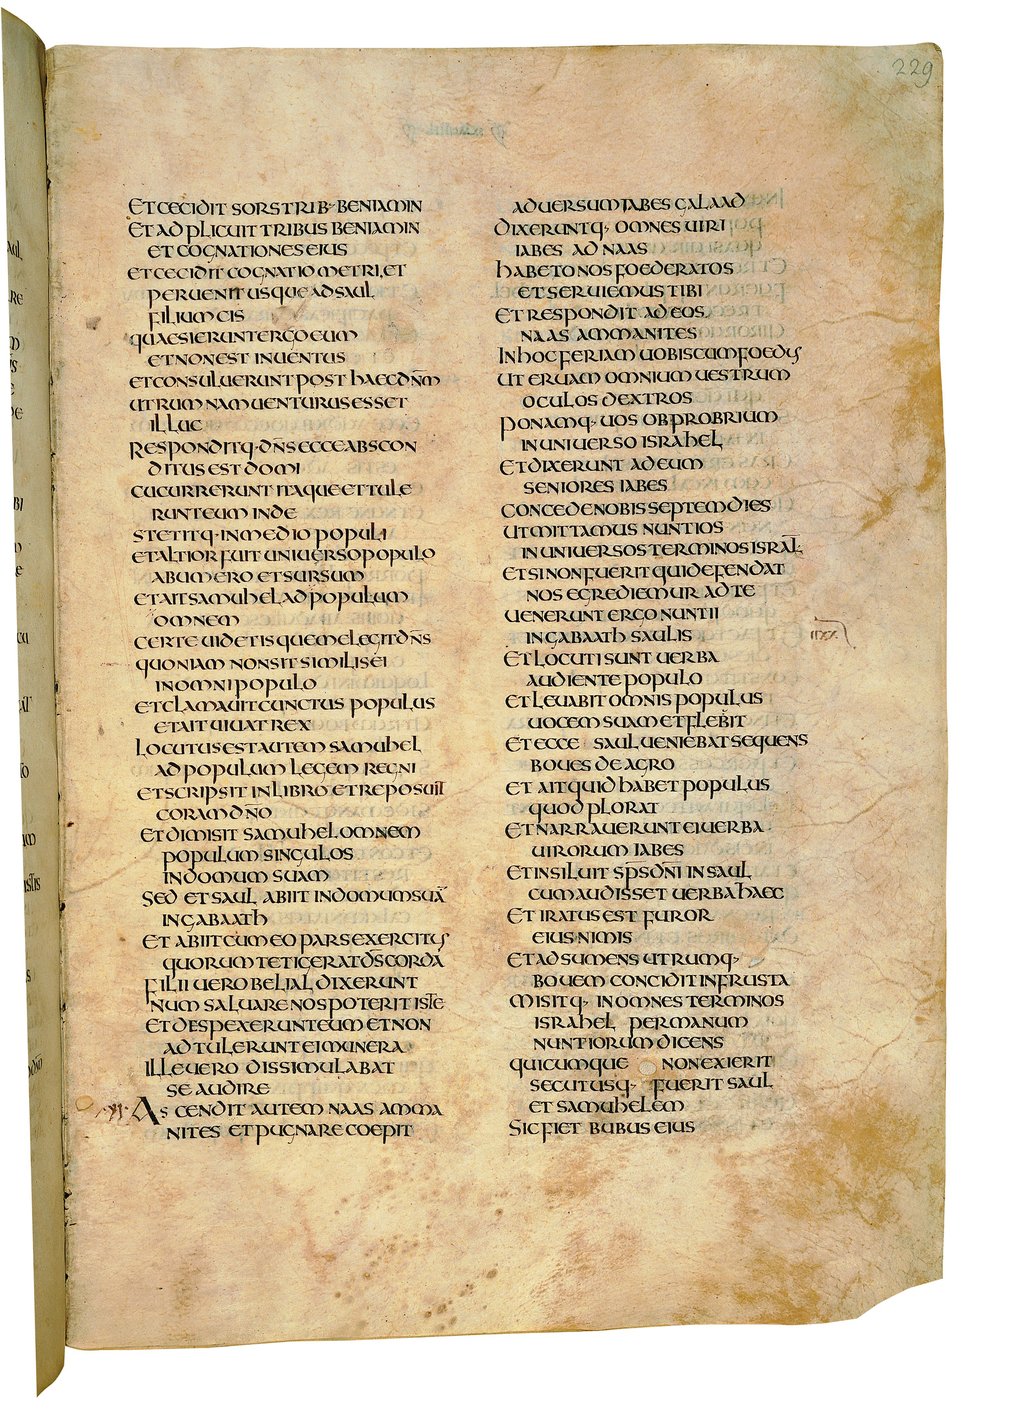 229
ET CECIDIT SORS TRIB· BENIAMIN
ET ADPLICUIT TRIBUS BENIAMIN
ET COGNATIONES EIUS
ET CECIDIT COGNATIO METRI, ET
PERUENIT USQUE AD SAUL
FILIUM CIS
QUAESIERUNT ERGO EUM
ET NON EST INUENTUS
ET CONSULUERUNT POST HAEC DÑM
UTRUMNAM UENTURUS ESSET
ILLUC
RESPONDITQ· DÑS ECCE ABSCON
DITUS EST DOMI
CUCURRERUNT ITAQUE ET TULE
RUNT EUM INDE
STETITQ· IN MEDIO POPULI
ET ALTIOR FUIT UNIUERSO POPULO
AB UMERO ET SURSUM
ET AIT SAMUHEL AD POPULUM
OMNEM
CERTE UIDETIS QUEM ELEGIT DÑS
QUONIAM NON SIT SIMILIS EI
IN OMNI POPULO
ET CLAMAUIT CUNCTUS POPULUS
ET AIT UIUAT REX
LOCUTUS EST AUTEM SAMUHEL
AD POPULUM LEGEM REGNI
ET SCRIPSIT IN LIBRO ET REPOSUIT
CORAM DÑO
ET DIMISIT SAMUHEL OMNEM
POPULUM SINGULOS
IN DOMUM SUAM
SED ET SAUL ABIIT IN DOMUM SUĀ
IN GABAATH
ET ABIIT CUM EO PARS EXERCITUS
QUORUM TETIGERAT D̄S CORDA
FILII UERO BELIAL DIXERUNT
NUM SALUARE NOS POTERIT ISTE
ET DESPEXERUNT EUM ET NON
ADTULERUNT EI MUNERA
ILLE UERO DISSIMULABAT
SE AUDIRE
ASCENDIT AUTEM NAAS AMMA
NITES ET PUGNARE COEPIT
ADUERSUM IABES GALAAD
DIXERUNTQ· OMNES UIRI
IABES AD NAAS
HABETO NOS FOEDERATOS
ET SERUIEMUS TIBI
ET RESPONDIT AD EOS
NAAS AMMANITES
IN HOC FERIAM UOBISCUM FOEDUS
UT ERUAM OMNIUM UESTRUM
OCULOS DEXTROS
PONAMQ· UOS OBPROBRIUM
IN UNIUERSO ISRAHEL
ET DIXERUNT AD EUM
SENIORES IABES
CONCEDE NOBIS SEPTEM DIES
UT MITTAMUS NUNTIOS
IN UNIUERSOS TERMINOS ISRAL̄
ET SI NON FUERIT QUI DEFENDAT
NOS EGREDIEMUR AD TE
UENERUNT ERGO NUNTII
IN GABAATH SAULIS
ET LOCUTI SUNT UERBA
AUDIENTE POPULO
ET LEUABIT OMNIS POPULUS
UOCEM SUAM ET FLEBIT
ET ECCE SAUL UENIEBAT SEQUENS
BOUES DE AGRO
ET AIT QUID HABET POPULUS
QUOD PLORAT
ET NARRAUERUNT EI UERBA
UIRORUM IABES
ET INSILUIT SP̄S DN̄I IN SAUL
CUM AUDISSET UERBA HAEC
ET IRATUS EST FUROR
EIUS NIMIS
ET ADSUMENS UTRUMQ·
BOUEM CONCIDIT IN FRUSTA
MISITQ· IN OMNES TERMINOS
ISRAHEL PER MANUM
NUNTIORUM DICENS
QUICUMQUE NON EXIERIT
SECUTUSQ· FUERIT SAUL
ET SAMUHELEM
SIC FIET BUBUS EIUS